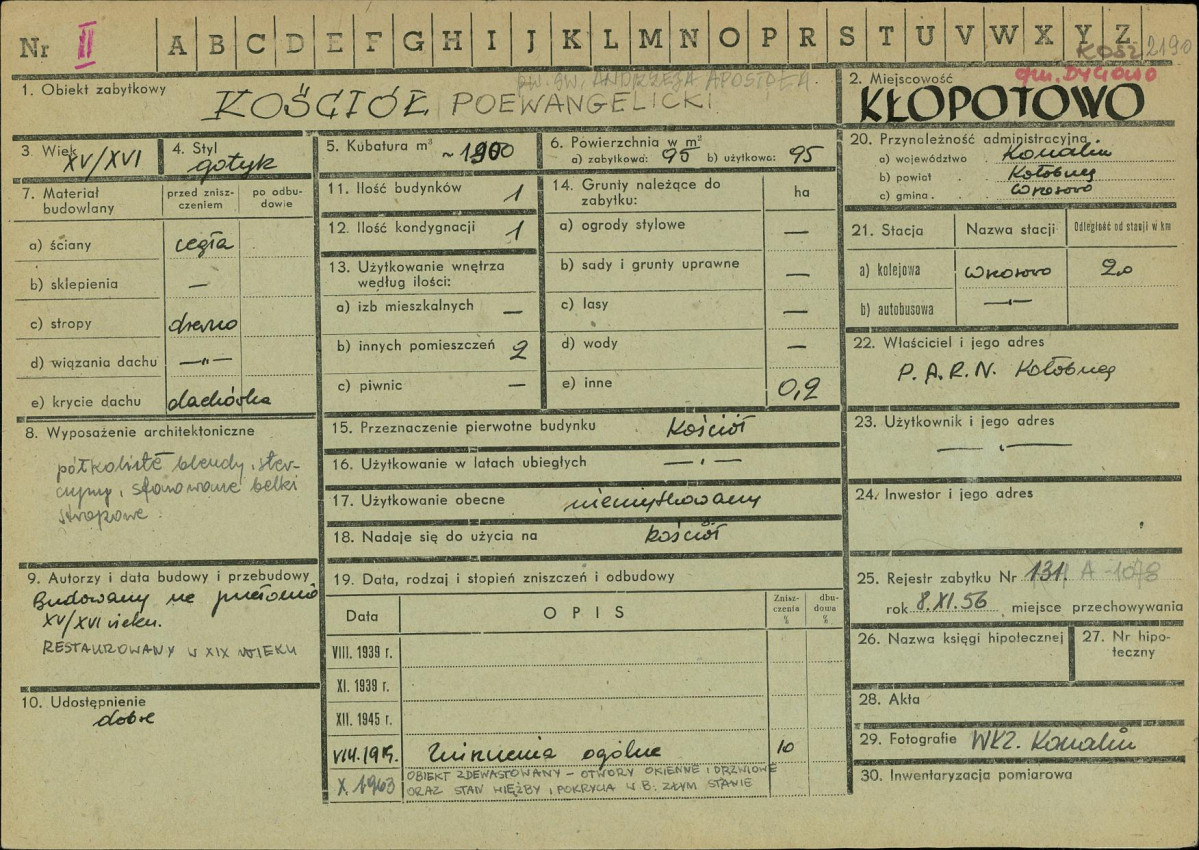 Nr II A B C D E F G H I J K L M N O P R S T U V W X Y Z
KOSZ 2190
gm. DYGOWO
pw. św. ANDRZEJA APOSTOŁA
1. Obiekt zabytkowy
KOŚCIÓŁ POEWANGELICKI
2. Miejscowość
KŁOPOTOWO
3. Wiek
XV/XVI
4. Styl
gotyk
5. Kubatura m³
~ 1900
6. Powierzchnia w m²
a) zabytkowa: 95 b) użytkowa: 95
7. Materiał budowlany
przed zniszczeniem
po odbudowie
a) ściany cegła
b) sklepienia —
c) stropy drewno
d) wiązania dachu —"—
e) krycie dachu dachówka
8. Wyposażenie architektoniczne
półkoliste blendy, ster-
czyny, fazowane belki
stropowe.
9. Autorzy i data budowy i przebudowy
Budowany na przełomie
XV/XVI wieku.
RESTAUROWANY W XIX WIEKU
10. Udostępnienie
dobre
11. Ilość budynków 1
12. Ilość kondygnacji 1
13. Użytkowanie wnętrza
według ilości:
a) izb mieszkalnych —
b) innych pomieszczeń 2
c) piwnic —
14. Grunty należące do
zabytku:
ha
a) ogrody stylowe —
b) sady i grunty uprawne —
c) lasy —
d) wody —
e) inne 0,2
15. Przeznaczenie pierwotne budynku kościół
16. Użytkowanie w latach ubiegłych —"—
17. Użytkowanie obecne nieużytkowany
18. Nadaje się do użycia na kościół
19. Data, rodzaj i stopień zniszczeń i odbudowy
Data
OPIS
Zniszczenia %
dbudowa %
VIII. 1939 r.
XI. 1939 r.
XII. 1945 r.
Zniszczenia ogólne 10
X. 1963 OBIEKT ZDEWASTOWANY – OTWORY OKIENNE I DRZWIOWE
ORAZ STAN WIĘŹBY I POKRYCIA W B. ZŁYM STANIE
20. Przynależność administracyjna
a) województwo Koszalin
b) powiat Kołobrzeg
c) gmina Wrzosowo
21. Stacja
Nazwa stacji
Odległość od stacji w km
a) kolejowa Wrzosowo 2,0
b) autobusowa —"—
22. Właściciel i jego adres
P.A.R.N. Kołobrzeg
23. Użytkownik i jego adres
—"—
24. Inwestor i jego adres
25. Rejestr zabytku Nr 131. A-1078
rok 8.XI.56 miejsce przechowywania
26. Nazwa księgi hipotecznej
27. Nr hipoteczny
28. Akta
29. Fotografie WKZ. Koszalin
30. Inwentaryzacja pomiarowa